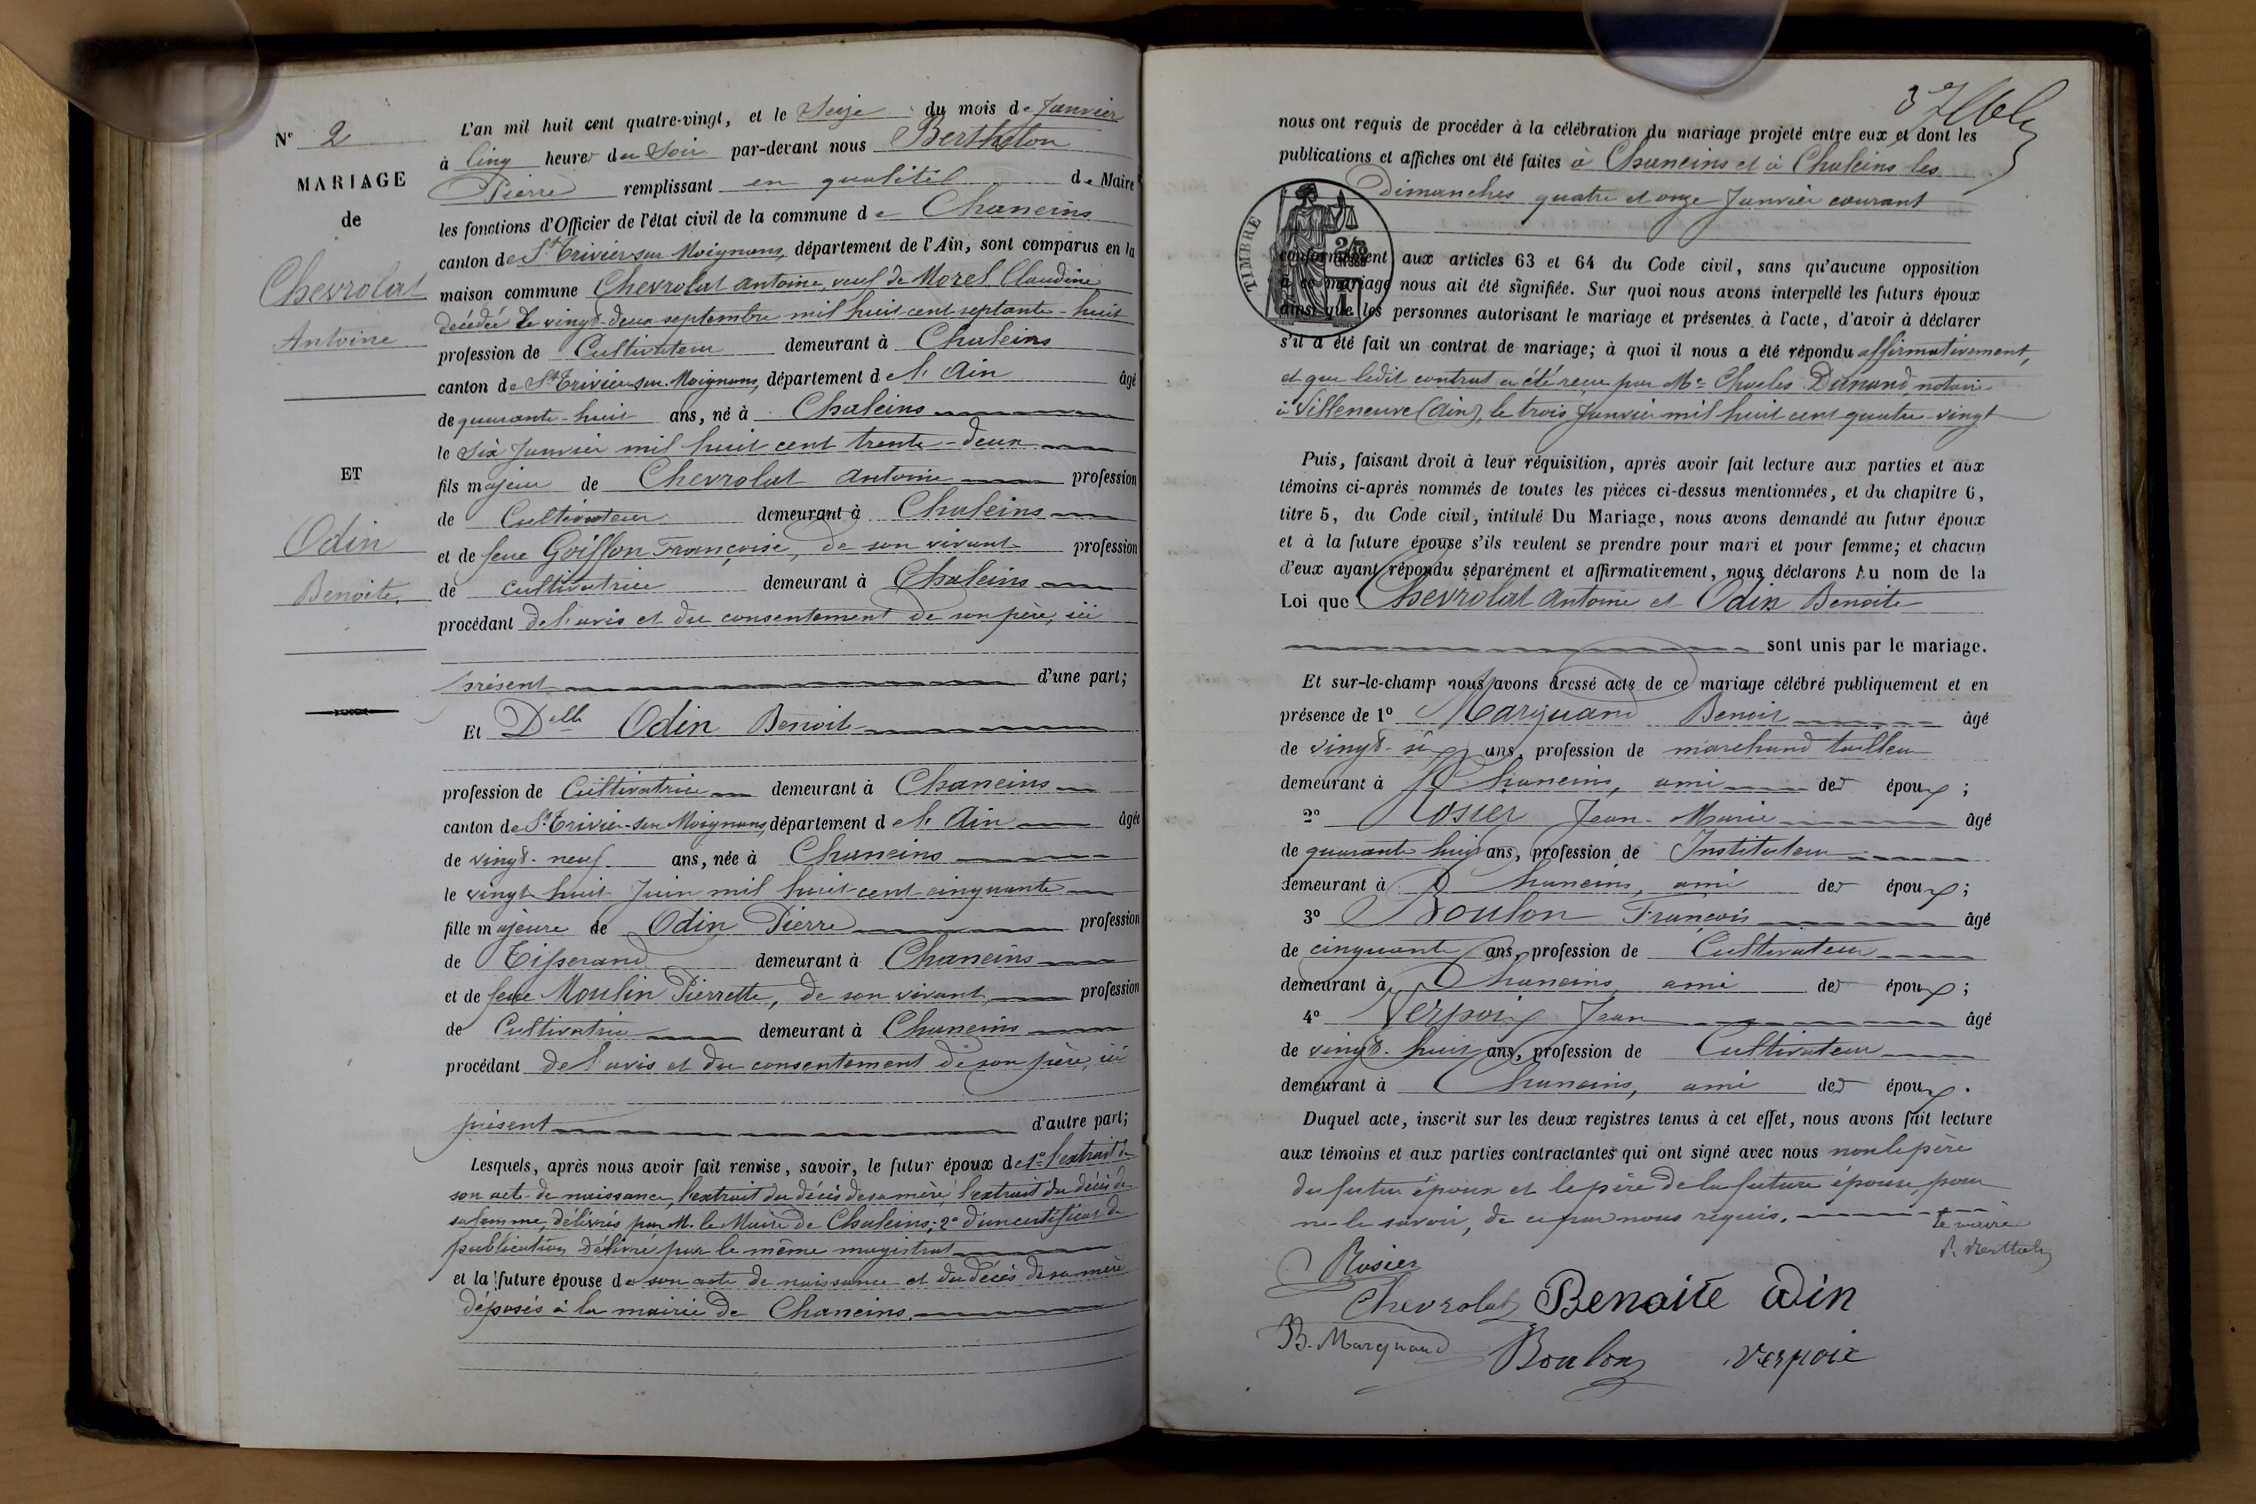 Nº 2
MARIAGE
de
Chevrolat
Antoine
ET
Odin
Benoite.
L'an mil huit cent quatre-vingt, et le Seize du mois de Janvier
à Cinq heures du Soir par-devant nous Berthelon
Pierre remplissant en qualité de Maire
les fonctions d'Officier de l'état civil de la commune de Chaneins
canton de St Trivier sur Moignans, département de l'Ain, sont comparus en la
maison commune Chevrolat Antoine, veuf de Morel Claudine
décédée le vingt-deux septembre mil huit cent septante-huit
profession de Cultivateur demeurant à Chaleins
canton de St Trivier-sur-Moignans, département de l'Ain âgé
de quarante-huit ans, né à Chaleins
le Six Janvier mil huit cent trente-deux
fils majeur de Chevrolat Antoine profession
de Cultivateur demeurant à Chaleins
et de feue Goiffon Françoise, de son vivant profession
de cultivatrice demeurant à Chaleins
procédant de l'avis et du consentement de son père, ici
présent d'une part;
Et Delle Odin Benoite
profession de Cultivatrice demeurant à Chaneins
canton de St Trivier-sur Moignans, département de l'Ain âgée
de vingt-neuf ans, née à Chaneins
le vingt huit Juin mil huit cent cinquante
fille majeure de Odin Pierre profession
de Tisserand demeurant à Chaneins
et de feue Moulin Pierrette, de son vivant profession
de Cultivatrice demeurant à Chaneins
procédant de l'avis et du consentement de son père, ici
présent d'autre part;
Lesquels, après nous avoir fait remise, savoir, le futur époux de 1º l'extrait de
son acte de naissance, l'extrait du décès de sa mère, l'extrait du décès de
sa femme, délivrés par M. le Maire de Chaleins; 2º d'un certificat de
publication délivré par le même magistrat
et la future épouse de son acte de naissance et du décès de sa mère
déposés à la mairie de Chaneins.
nous ont requis de procéder à la célébration du mariage projeté entre eux et dont les
publications et affiches ont été faites à Chaneins et à Chaleins les
Dimanches quatre et onze Janvier courant
TIMBRE
conformément aux articles 63 et 64 du Code civil, sans qu'aucune opposition
à ce mariage nous ait été signifiée. Sur quoi nous avons interpellé les futurs époux
ainsi que les personnes autorisant le mariage et présentes à l'acte, d'avoir à déclarer
s'il a été fait un contrat de mariage; à quoi il nous a été répondu affirmativement,
et que ledit contrat a été reçu par Me Charles Dunand, notaire
à Villeneuve (Ain), le trois Janvier mil huit cent quatre-vingt
Puis, faisant droit à leur réquisition, après avoir fait lecture aux parties et aux
témoins ci-après nommés de toutes les pièces ci-dessus mentionnées, et du chapitre 6,
titre 5, du Code civil, intitulé Du Mariage, nous avons demandé au futur époux
et à la future épouse s'ils veulent se prendre pour mari et pour femme; et chacun
d'eux ayant répondu séparément et affirmativement, nous déclarons Au nom de la
Loi que Chevrolat Antoine et Odin Benoite
sont unis par le mariage.
Et sur-le-champ nous avons dressé acte de ce mariage célébré publiquement et en
présence de 1º Marquand Benoit âgé
de vingt-six ans, profession de marchand tailleur
demeurant à Chaneins, ami des époux;
2º Rosier Jean-Marie âgé
de quarante huit ans, profession de Instituteur
demeurant à Chaneins, ami des époux;
3º Boulon François âgé
de cinquante ans, profession de Cultivateur
demeurant à Chaneins, ami des époux;
4º Verpoix Jean âgé
de vingt-huit ans, profession de Cultivateur
demeurant à Chaneins, ami des époux.
Duquel acte, inscrit sur les deux registres tenus à cet effet, nous avons fait lecture
aux témoins et aux parties contractantes qui ont signé avec nous non le père
du futur époux et le père de la future épouse, pour
ne le savoir, de ce par nous requis.
Le maire
P. Berthelon
Rosier
Chevrolat Benoite Odin
B. Marquand Boulon verpoix